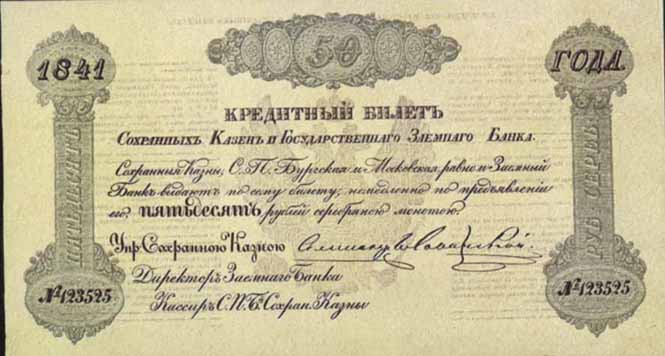 50
1841 ГОДА.
КРЕДИТНЫЙ БИЛЕТЪ
СОХРАННЫХЪ КАЗЕНЪ И ГОСУДАРСТВЕННАГО ЗАЕМНАГО БАНКА.
Сохранныя Казны, С.П. Бургская и Московская, равно и Заемный
Банкъ выдаютъ по сему билету, немедленно по предъявленіи
его, ПЯТЬДЕСЯТЪ рублей серебряною монетою.
Упр. Сохранною Казною
Директоръ Заемнаго Банка
Кассиръ С.П.Б. Сохран. Казны
ПЯТЬДЕСЯТЪ
РУБ. СЕРЕБ.
№123525
№123525